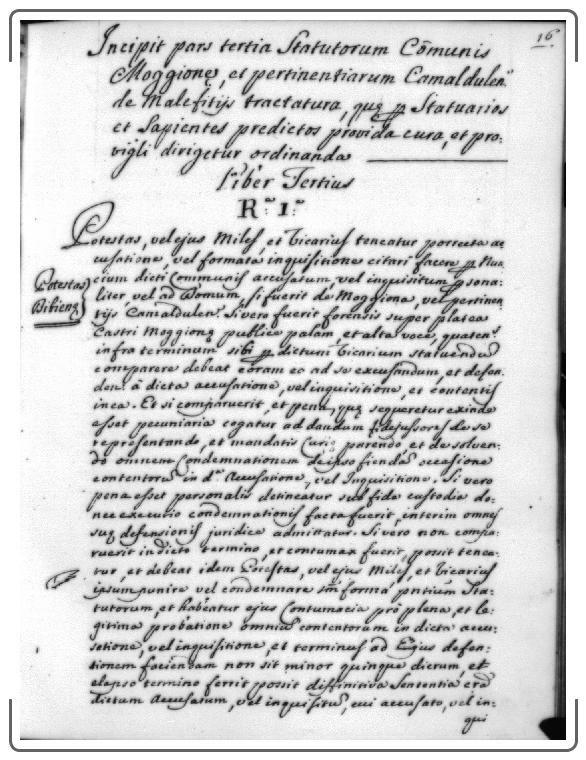 16.
Incipit pars tertia Statutorum Cōmunis
Moggionę, et pertinentiarum Camaldulen:
de Malefitijs tractatura, quę p Statuarios
et Sapientes predictos provida cura, et pro:
vigli dirigetur ordinanda
Liber Tertius
R.ca 1.ma
Potestas, vel ejus Miles, et Vicarius teneatur porrecta ac
cusatione, vel formata inquisitione citari facere p Nun
cium dicti Communis accusatum, vel inquisitum psona:
liter, vel ad Domum, si fuerit de Moggiona, vel pertinen
Potestas
tijs Camaldulen: Si vero fuerit forensis super platea
Bibienę
Castri Moggionę publice palam et alta voce, quaten:
infra terminum sibi p dictum Vicarium statuendū
comparere debeat coram eo ad se excusandum, et defen.
dend a dicta accusatione, vel inquisitione, et contentis
in ea. Et si comparuerit, et pena, quę sequeretur exinde
esset pecuniaria cogatur ad dandum fidejussores de se
representando, et mandatis Curię parendo et de solven:
do omnem Condemnationem de ipso fiendā occasione
contentorū in d.a Accusatione, vel Inquisitione. Si vero
pena esset personalis detineatur sub fida custodia do:
nec executio condemnationis facta fuerit, interim omnes
suę defensiones juridicę admittatur. Si vero non compa:
ruerit in dicto termino, et contumax fuerit, possit tenea:
tur, et debeat idem Potestas, vel ejus Miles, et Vicarius
ipsum punire vel condemnare sm forma pntium Sta:
tutorum, et habeatur ejus Contumacia pro plena, et le:
gitima probatione omniū contentorum in dicta accu:
satione, vel inquisitione, et terminus ad Ejus defen:
tionem faciendam non sit minor quinque dierum, et
elapso termino ferrit possit diffinitiva Sententia crā
dictum Accusatum, vel inquisitū, cui accusato, vel in:
qui